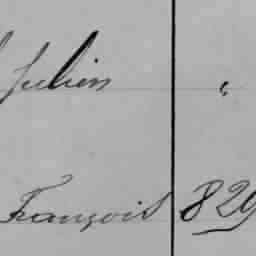 Julien "
François 829